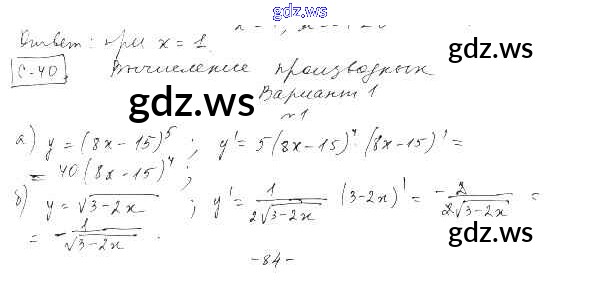 gdz.ws
Ответ: при x = 1.
gdz.ws
С-40 Вычисление производных
Вариант 1
gdz.ws
№1
а) y = (8x - 15)⁵ ; y' = 5(8x - 15)⁴ · (8x - 15)' =
gdz.ws
= 40(8x - 15)⁴ ;
б) y = √(3 - 2x) ; y' = 1/(2√(3 - 2x)) (3 - 2x)' = - 2/(2√(3 - 2x)) =
= - 1/√(3 - 2x) .
gdz.ws
- 84 -